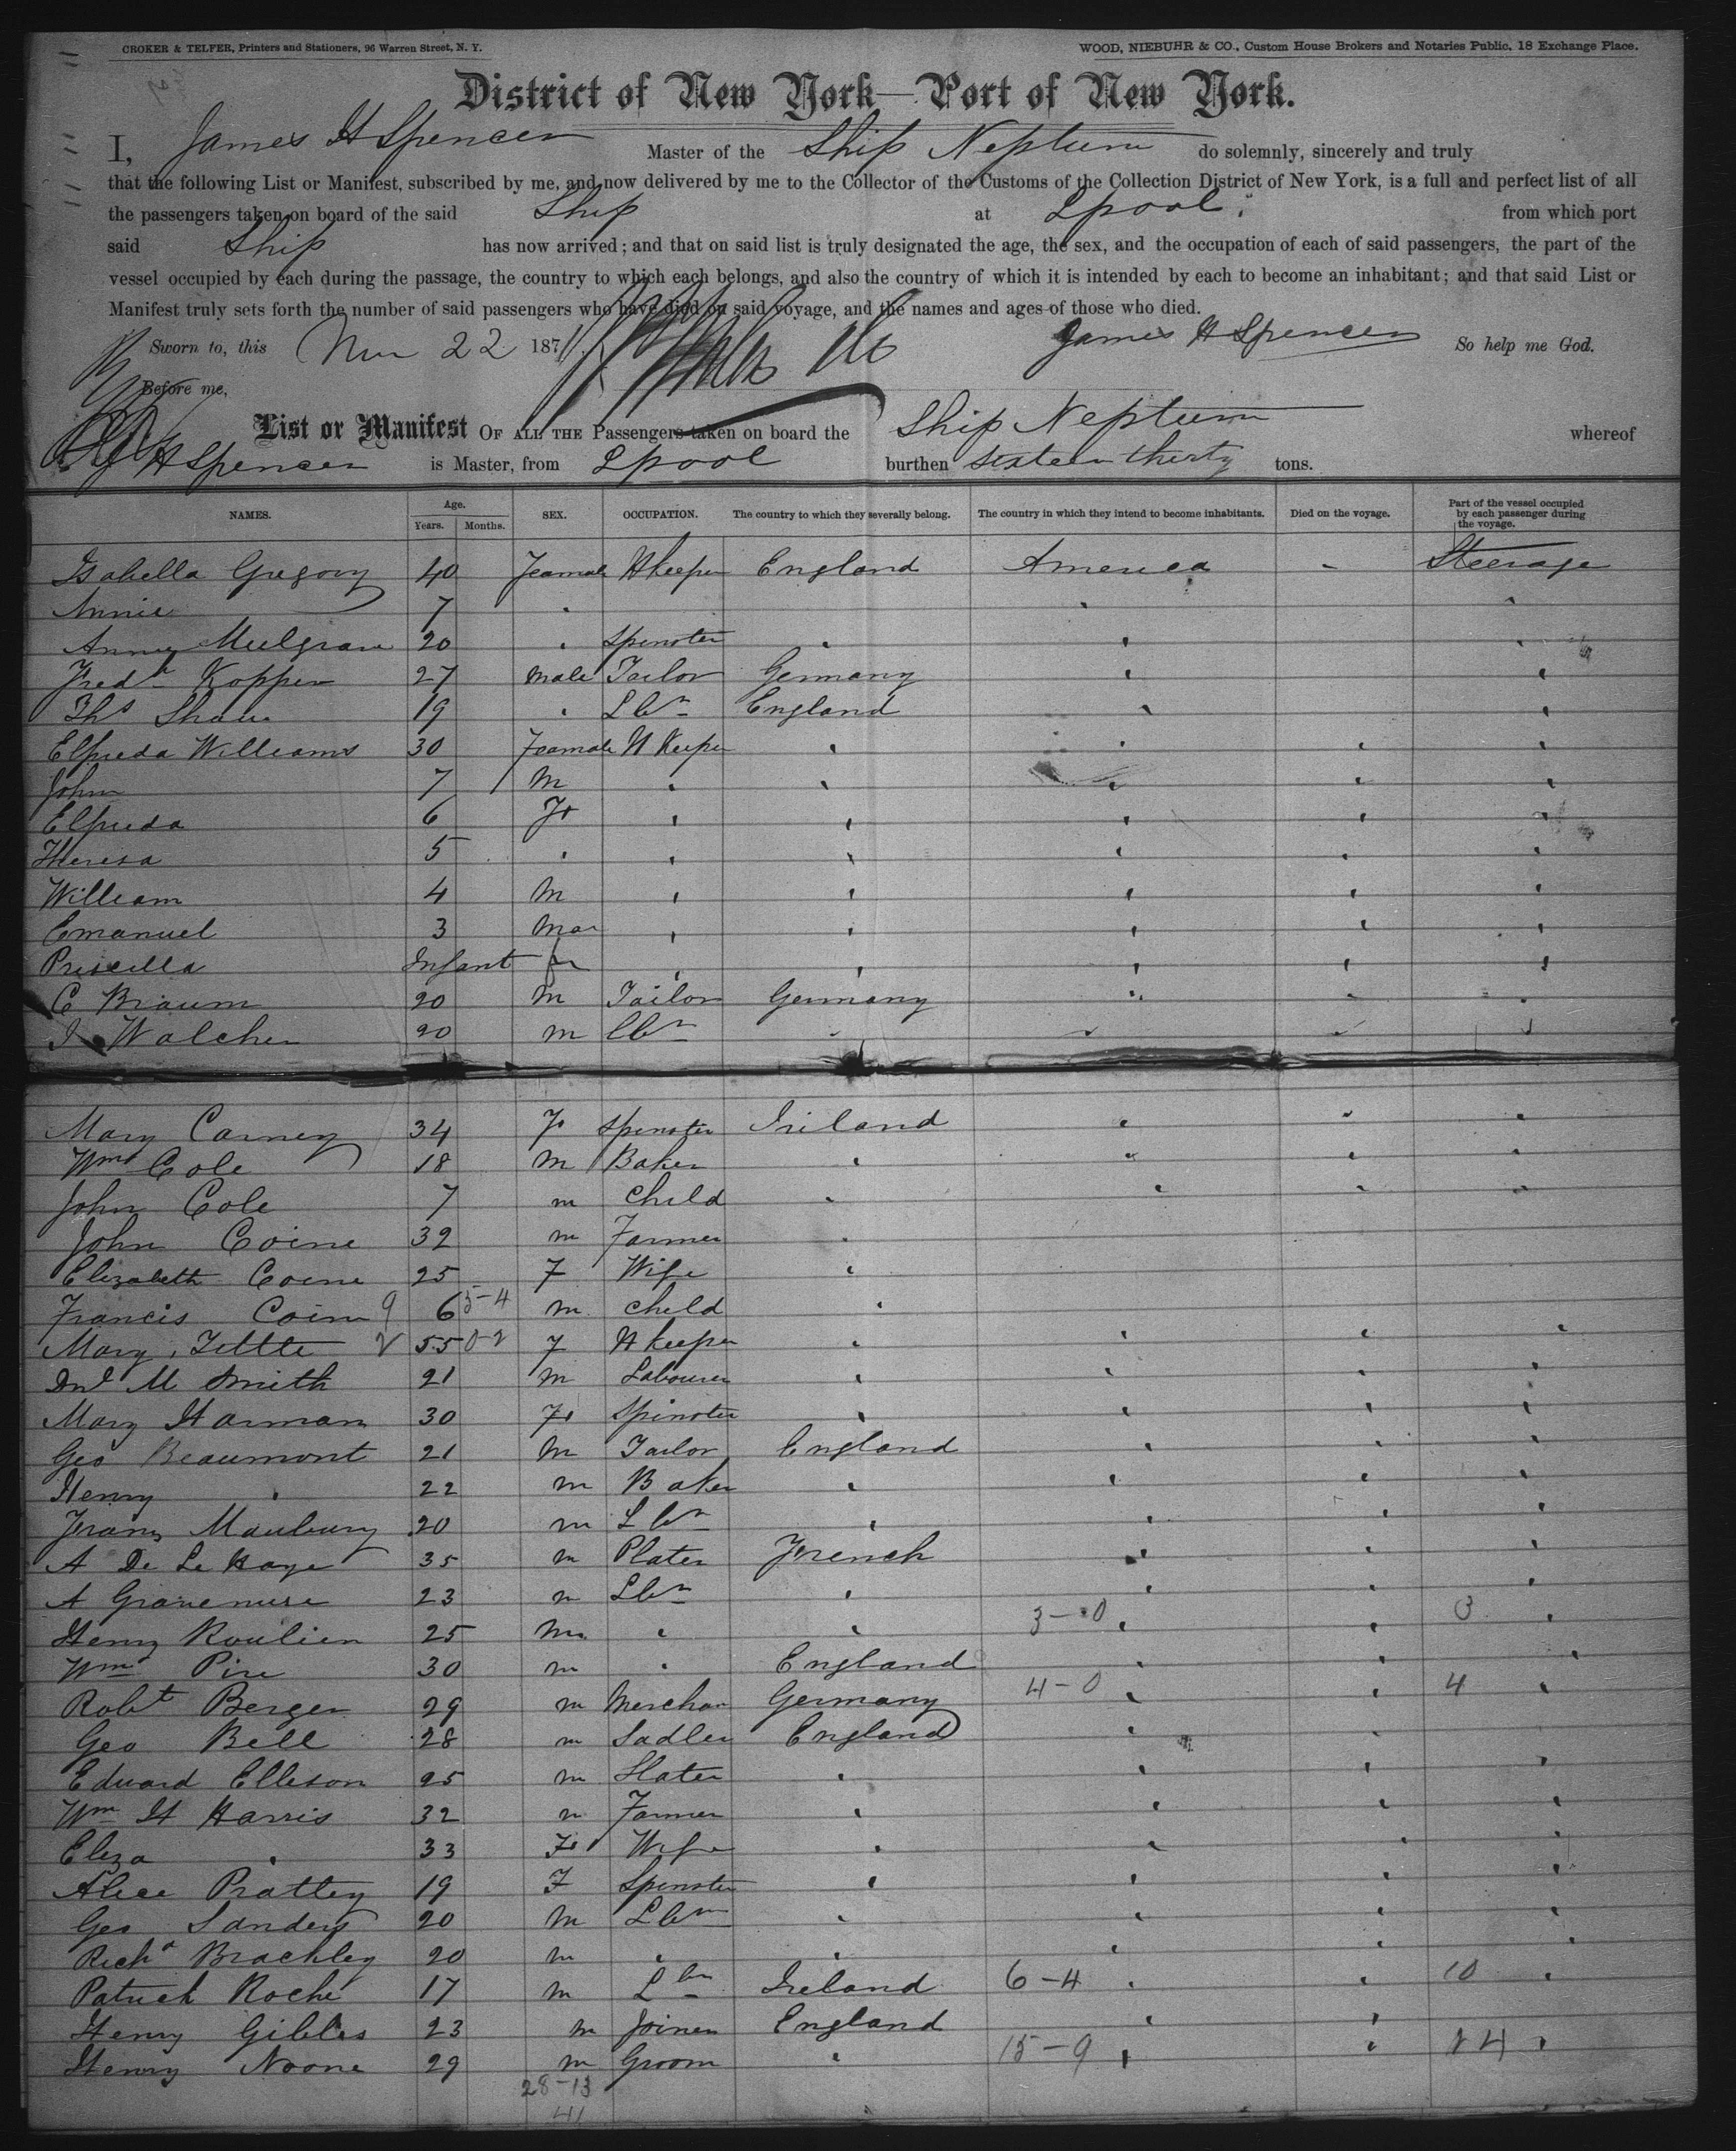 CROKER & TELFER, Printers and Stationers, 96 Warren Street, N. Y.
WOOD, NIEBUHR & CO., Custom House Brokers and Notaries Public, 18 Exchange Place.
District of New York—Port of New York.
I, James H Spencer Master of the Ship Neptune do solemnly, sincerely and truly
that the following List or Manifest, subscribed by me, and now delivered by me to the Collector of the Customs of the Collection District of New York, is a full and perfect list of all
the passengers taken on board of the said Ship at Lpool, from which port
said Ship has now arrived; and that on said list is truly designated the age, the sex, and the occupation of each of said passengers, the part of the
vessel occupied by each during the passage, the country to which each belongs, and also the country of which it is intended by each to become an inhabitant; and that said List or
Manifest truly sets forth the number of said passengers who have died on said voyage, and the names and ages of those who died.
Sworn to, this 22 187 James H Spencer So help me God.
Before me,
List or Manifest OF ALL THE Passengers taken on board the Ship Neptune whereof
H Spencer is Master, from Lpool burthen sixteen thirty tons.
NAMES. Age. Years. Months. SEX. OCCUPATION. The country to which they severally belong. The country in which they intend to become inhabitants. Died on the voyage. Part of the vessel occupied by each passenger during the voyage.
Isabella Gregory 40 Feamale Hkeeper England America - Steerage
Annie 7 "
Anney Mulgrave 20 " Spinster "
Fredk Kopper 27 male Tailor Germany "
Ths Shaw 19 " Lbr England "
Elfreda Williams 30 Feamale H Keeper "
John 7 M "
Elfreda 6 Fe "
Theresa 5 "
William 4 M "
Emanuel 3 Ma "
Priscilla Infant fe "
C Braum 20 M Tailor Germany "
J Walcher 20 m Lbr "
Mary Carney 34 Fe Spinster Ireland "
Wm Cole 18 M Baker "
John Cole 7 m Child "
John Coine 32 m Farmer "
Elizabeth Coine 25 F Wife "
Francis Coine 9 6 5-4 m child "
Mary Tettte 2 55 0-2 F H keeper "
Dnl M Smith 21 m Labourer "
Mary Harman 30 Fe Spinster "
Geo Beaumont 21 M Tailor England "
Henry " 22 m Baker "
Franz Maubury 20 m Lbr "
A De Le Haye 35 m Plater French "
A Gravemere 23 m Lbr "
Henry Roulien 25 M " " 3-0 3
Wm Pire 30 m " England "
Robt Berger 29 m Merchan Germany 4-0 4
Geo Bell 28 m Sadler England "
Edward Elleson 25 m Slater "
Wm H Harris 32 m Farmer "
Eliza " 33 Fe Wife "
Alice Prattey 19 F Spinster "
Geo Sanders 20 M Lbr "
Richd Brachley 20 m "
Patrick Roche 17 m Lbr Ireland 6-4 10
Henry Gibbs 23 m Joiner England "
Henry Noone 29 m Groom " 15-9 24
28-13
41